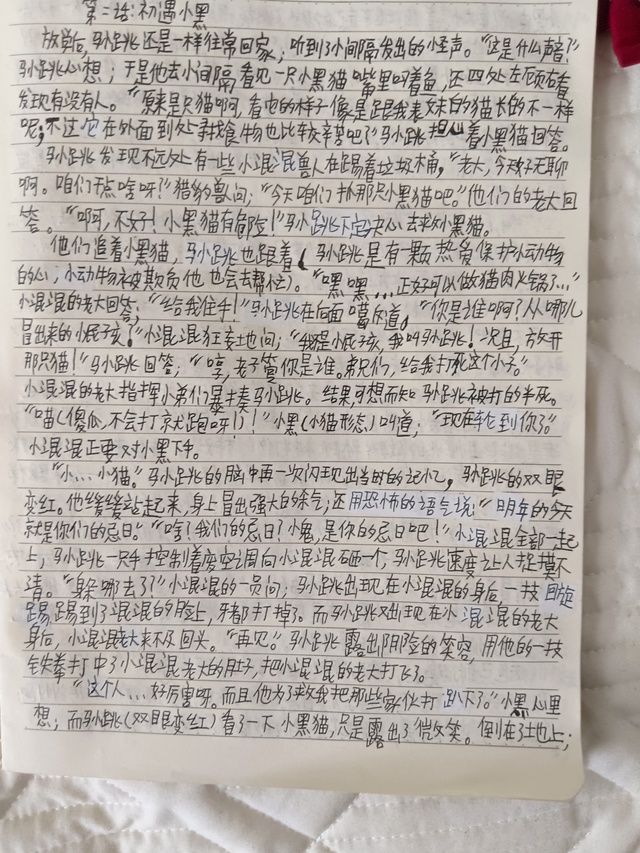 第二话:初遇小黑
放学后,马小跳还是一样往常回家,听到了小间隔发出的怪声。“这是什么声音?”
马小跳心想;于是他去小间隔看见一只小黑猫嘴里叼着鱼,还四处左顾右看
发现有没有人。“原来是只猫啊,看它的样子像是跟我表妹的猫长的不一样
呢;不过它在外面到处寻找食物也比较辛苦吧”马小跳担心看着小黑猫回答。
马小跳发现不远处有一些小混混兽人在踢着垃圾桶,“老大,今天好无聊
啊。咱们干点啥呀?”猎豹兽问;“今天咱们扑那只小黑猫吧。”他们的老大回
答。“啊,不好!小黑猫有危险!”马小跳下定决心去救小黑猫。
他们追着小黑猫,马小跳也跟着(马小跳是有一颗热爱保护小动物
的心,小动物被欺负他也会去帮忙)。“嘿嘿...正好可以做猫肉火锅了...”
小混混的老大回答;“给我住手!”马小跳在后面喊道,“你是谁啊?从哪儿
冒出来的小屁孩!”小混混狂妄地问;“我是小屁孩,我叫马小跳!况且,放开
那只猫!”马小跳回答;“哼,老子管你是谁。弟兄们,给我打死这个小子。”
小混混的老大指挥小弟们暴揍马小跳。结果可想而知马小跳被打的半死。
“喵(傻瓜,不会打就跑呀!)!”小黑(小猫形态)叫道;“现在轮到你了。”
小混混正要对小黑下手。
“小...小猫。”马小跳的脑中再一次闪现出当时的记忆,马小跳的双眼
变红。他缓缓站起来,身上冒出强大的杀气;还用恐怖的语气说:“明年的今天
就是你们的忌日。”“啥?我们的忌日?小鬼,是你的忌日吧!”小混混全部一起
上,马小跳一只手控制着废空调向小混混砸一个,马小跳速度让人捉摸不
清。“躲哪去了?”小混混的一员问;马小跳出现在小混混的身后,一技回旋
踢踢到了混混的脸上,牙都打掉了。而马小跳又出现在小混混的老大
身后,小混混老大来不及回头。“再见。”马小跳露出阴险的笑容,用他的一技
铁拳打中了小混混老大的肚子,把小混混的老大打飞了。
“这个人...好厉害呀。而且他为了救我把那些家伙打趴下了。”小黑心里
想;而马小跳(双眼变红)看了一下小黑猫,只是露出了微笑。倒在了地上;